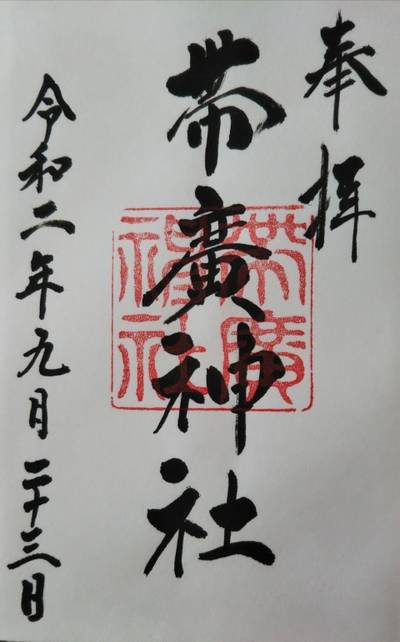 奉拝
帯廣神社
帯廣
神社
令和二年九月二十三日